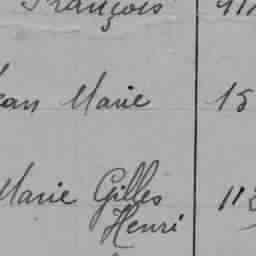 François
Marie 15
Marie Gilles
Henri